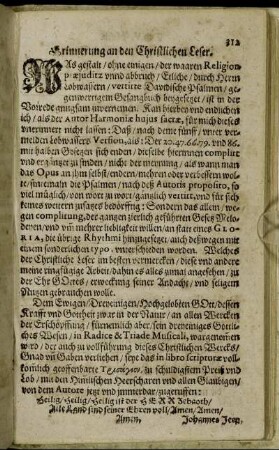 312
Erinnerung an den Christlichen Leser.
WAs gestalt / ohne einigen / der waaren Religion
præjuditz unnd abbruch / Etliche / durch Herrn
Lobwassern / vertirte Davidische Psalmen / ge-
genwertigem Gesangbuch beygesetzet / ist in der
Vorrede gnugsam vernommen. Kan hierbey und endlichen
ich / als der Autor Harmoniæ hujus factæ, für mich dieses
unerinnert nicht lassen: Daß / nach deme fünff / unter ver-
melden Lobwassers Version, als: Der 20. 47. 66. 79. und 86.
mir haben Gelegen sich enden / dieselbe hiermnen complirt
und ergänzet zu finden / nicht der meynung / als wann man
das Opus an ihm selbst / endern / mehren oder verbessern wol-
te / sintemaln die Psalmen / nach deß Autoris proposito, so
viel müglich / von wort zu wort gäntzlich vertirt / und für sich
keines weitern zusatz bedörfftig: Sondern das allein / we-
gen complirung / der gantzen zierlich geführten Gesetz Melo-
deyen / und umb mehrer lieblichkeit willen / an statt eines GLO-
RIA, die übrige Rhythmi hinzugesetzt / auch deßwegen mit
einem sonderlichen typo unterschieden worden. Welches
der Christliche Leser im besten vermercken / diese und andere
meine eingfügige Arbeit / dahin es alles zumal angesehen / zu
der Ehr GOttes / erweckung seiner Andacht / und seligem
Nutzen gebrauchen wolle.
Dem Ewigen / Dreyeinigen / Hochgelobten GOtt / dessen
Krafft und Gottheit zwar in der Natur / an allen Wercken
der Erschöpffung / fürnemlich aber / sein dreyeiniges Göttli-
ches Wesen / in Radice & Triade Musicali, wargenommen
wird / der auch zu vollführung dieses Christlichen Wercks /
Gnad uñ Gaben verliehen / seye das in libro scripturæ voll-
kömlich geoffenbarte zu schuldigstem Preiß und
Lob / mit den Himlischen Heerscharen und allen Glaubigen /
von dem Autore jetzt und immerdar / zugeruffen:
Heilig / Heilig / Heilig ist der HERR Zebaoth /
Alle Land sind seiner Ehren voll / Amen / Amen /
Amen. Johannes Jeep.